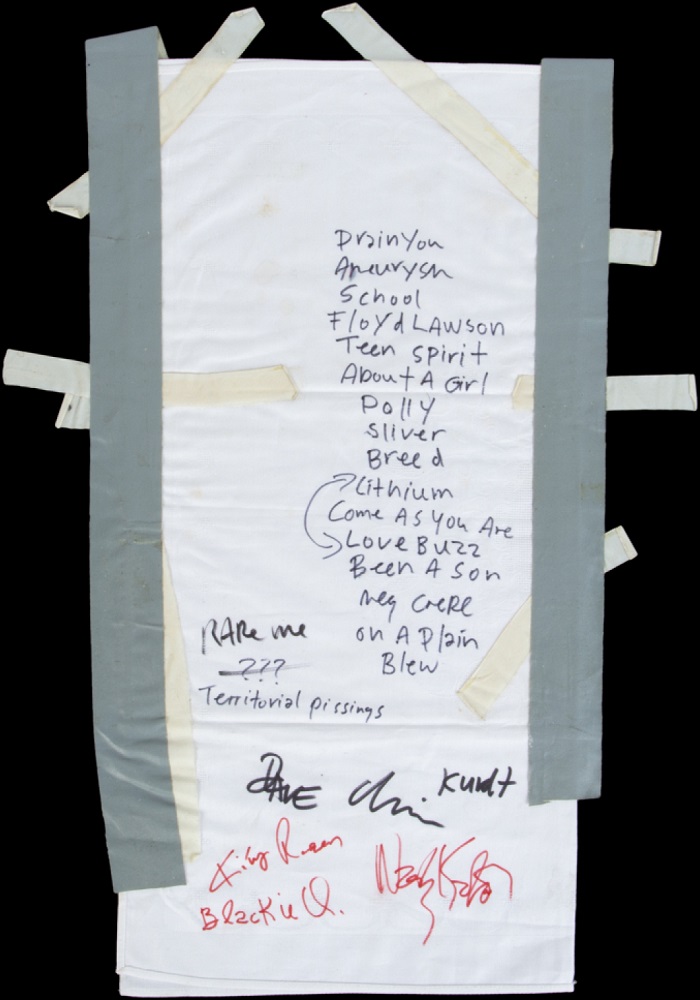 Drain You
Aneurysm
School
Floyd LAWSON
Teen Spirit
About A Girl
Polly
Sliver
Breed
Lithium
Come As You Are
Love Buzz
Been A Son
Neg Creep
on A Plain
Blew
RARe me
???
Territorial pissings
DAVE
Chris
Kurdt
King Roeser
Blackie O.